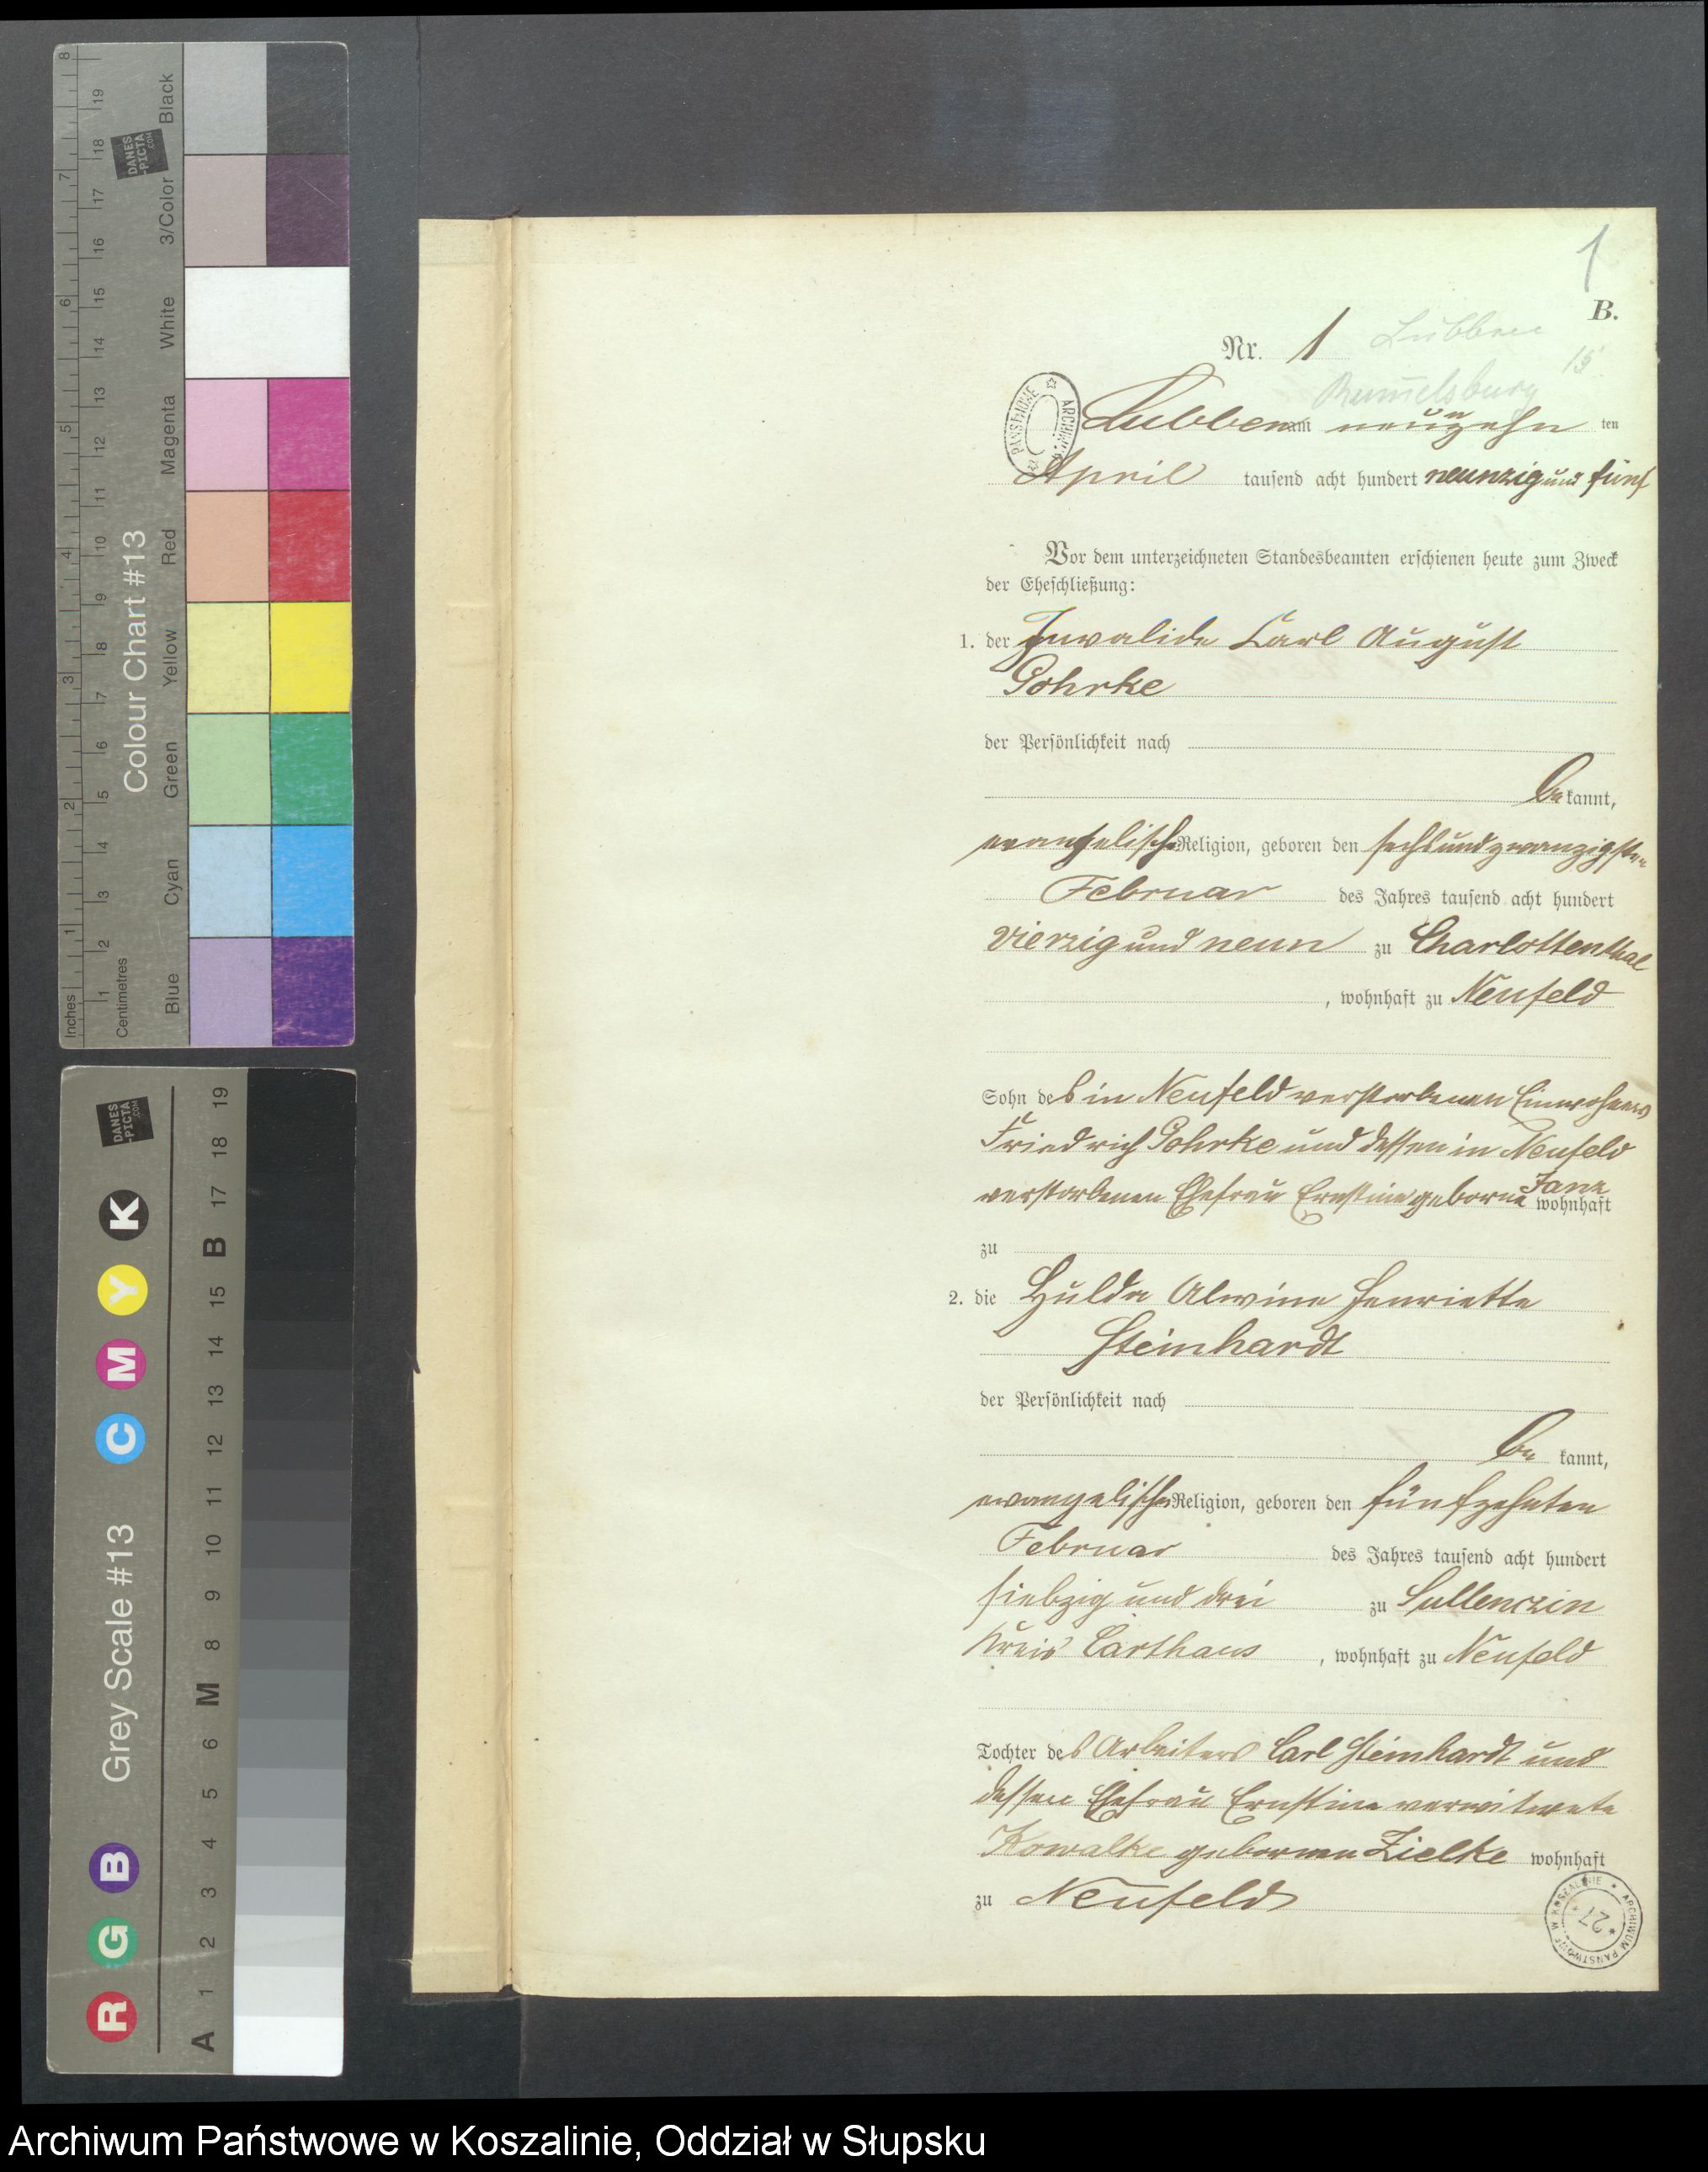 1
B.
Nr. 1 Lubben
15
Rummelsburg
Lubben am neunzehn ten
April tausend acht hundert neunzig und fünf
Vor dem unterzeichneten Standesbeamten erschienen heute zum Zweck
der Eheschließung:
1. der Invalide Carl August
Gohrke
der Persönlichkeit nach
be kannt,
evangelischer Religion, geboren den sechsundzwanzigsten
Februar des Jahres tausend acht hundert
vierzig und neun zu Charlottenthal
, wohnhaft zu Neufeld
Sohn des in Neufeld verstorbenen Einwohners
Friedrich Gohrke und dessen in Neufeld
verstorbenen Ehefrau Ernstine geborne Janz
wohnhaft
zu
2. die Hulda Alwine Henriette
Steinhardt
der Persönlichkeit nach
be kannt,
evangelischer Religion, geboren den fünfzehnten
Februar des Jahres tausend acht hundert
siebzig und drei zu Sullenczin
Kreis Carthaus , wohnhaft zu Neufeld
Tochter des Arbeiters Carl Steinhardt und
dessen Ehefrau Ernstine verwitwete
Kowalke gebornen Zielke wohnhaft
zu Neufeld
ARCHIWUM PAŃSTWOWE W KOSZALINIE
27
Inches
1 2 3 4 5 6 7 8
Centimetres
1 2 3 4 5 6 7 8 9 10 11 12 13 14 15 16 17 18 19
Colour Chart #13
Blue Cyan Green Yellow Red Magenta White 3/Color Black
DANES
-PICTA
.COM
Grey Scale #13
R G B C M Y K
A 1 2 3 4 5 6 M 8 9 10 11 12 13 14 15 B 17 18 19
DANES
-PICTA
.COM
Archiwum Państwowe w Koszalinie, Oddział w Słupsku